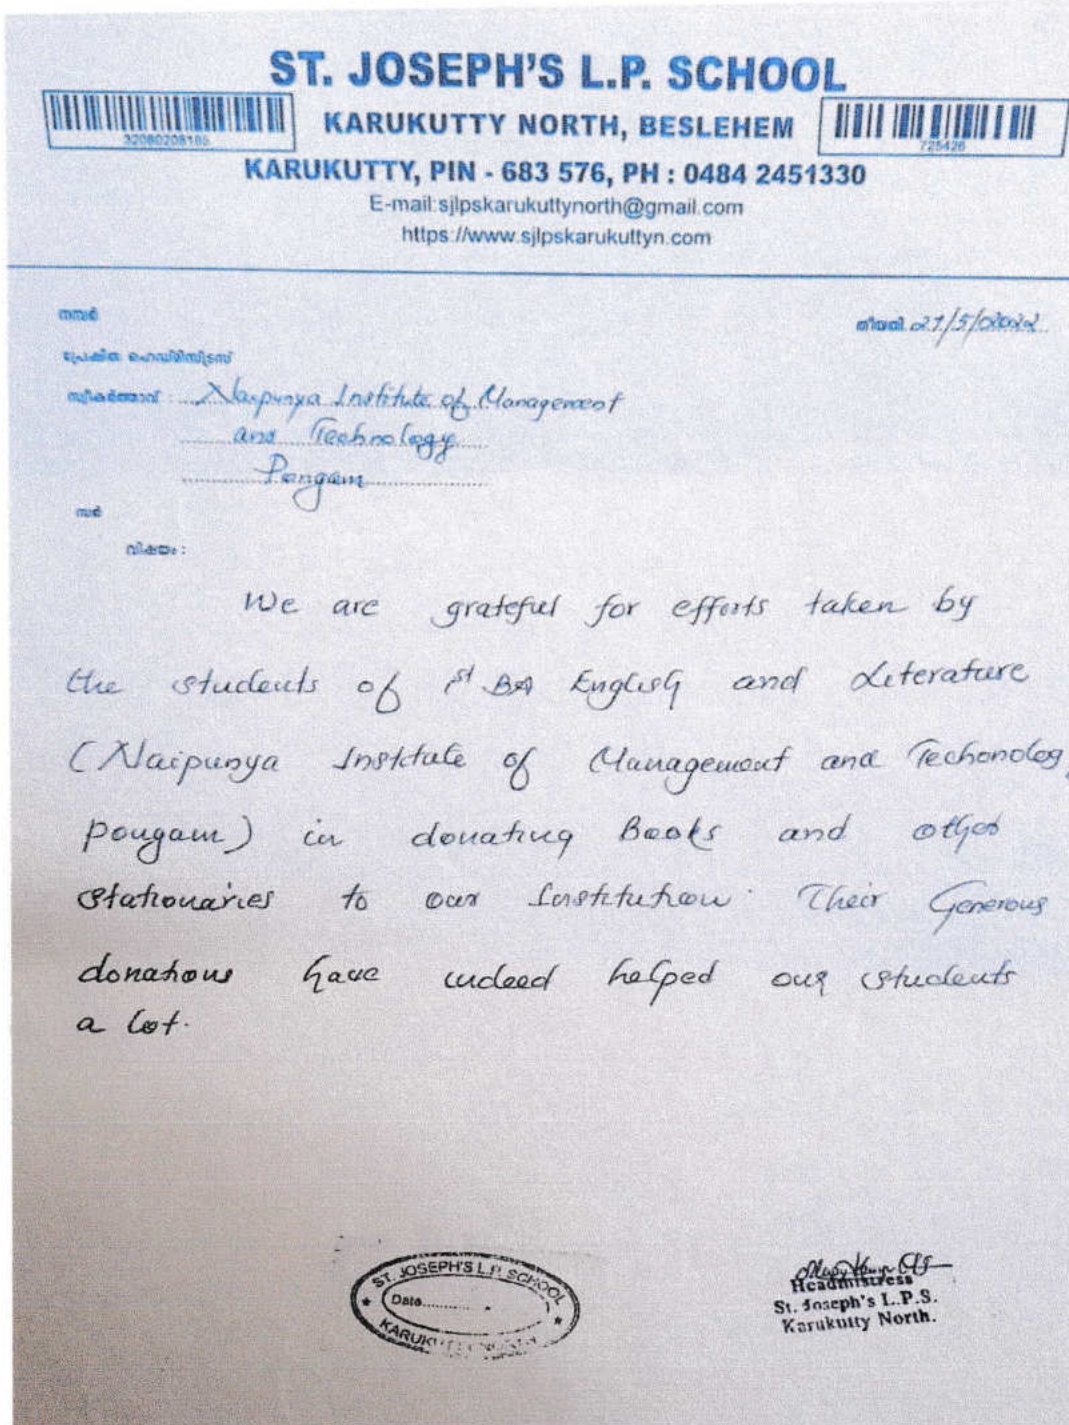 ST. JOSEPH'S L.P. SCHOOL
KARUKUTTY NORTH, BESLEHEM
32080208105
725426
KARUKUTTY, PIN - 683 576, PH : 0484 2451330
E-mail:sjlpskarukuttynorth@gmail.com
https://www.sjlpskarukuttyn.com
നമ്പർ
തീയതി 27/5/2022
പ്രേഷിത ഹെഡ്മിസ്ട്രസ്
സ്വീകർത്താവ് : Naipunya Institute of Management
and Technology
Pongam
സർ
വിഷയം :
We are grateful for efforts taken by
the students of 1st BA English and Literature
(Naipunya Institute of Management and Techonology
pongam) in donating Books and other
stationaries to our Institution. Their Generous
donations have indeed helped our students
a lot.
ST. JOSEPH'S L.P. SCHOOL
Date...........
KARUKUTTY NORTH
Headmistress
St. Joseph's L.P.S.
Karukutty North.